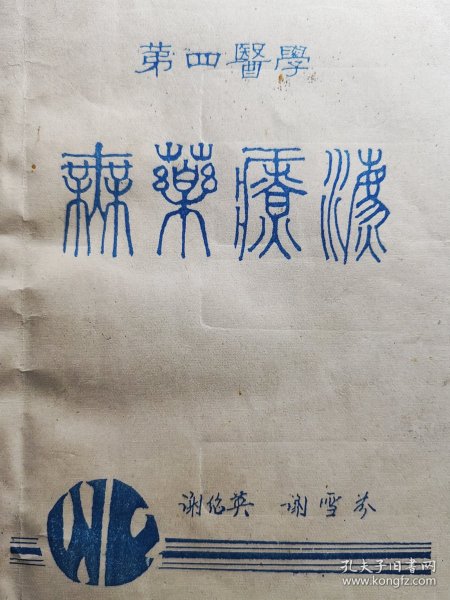 第四醫學
無藥療法
谢绍英 谢雪芬
孔夫子旧书网
www.kongfz.com